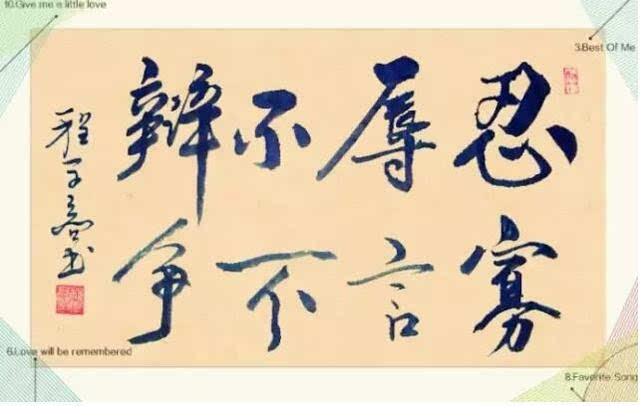 10.Give me a little love
3.Best Of Me
忍辱不辩
寡言不争
程子书
6.Love will be remembered
8.Favorite Song